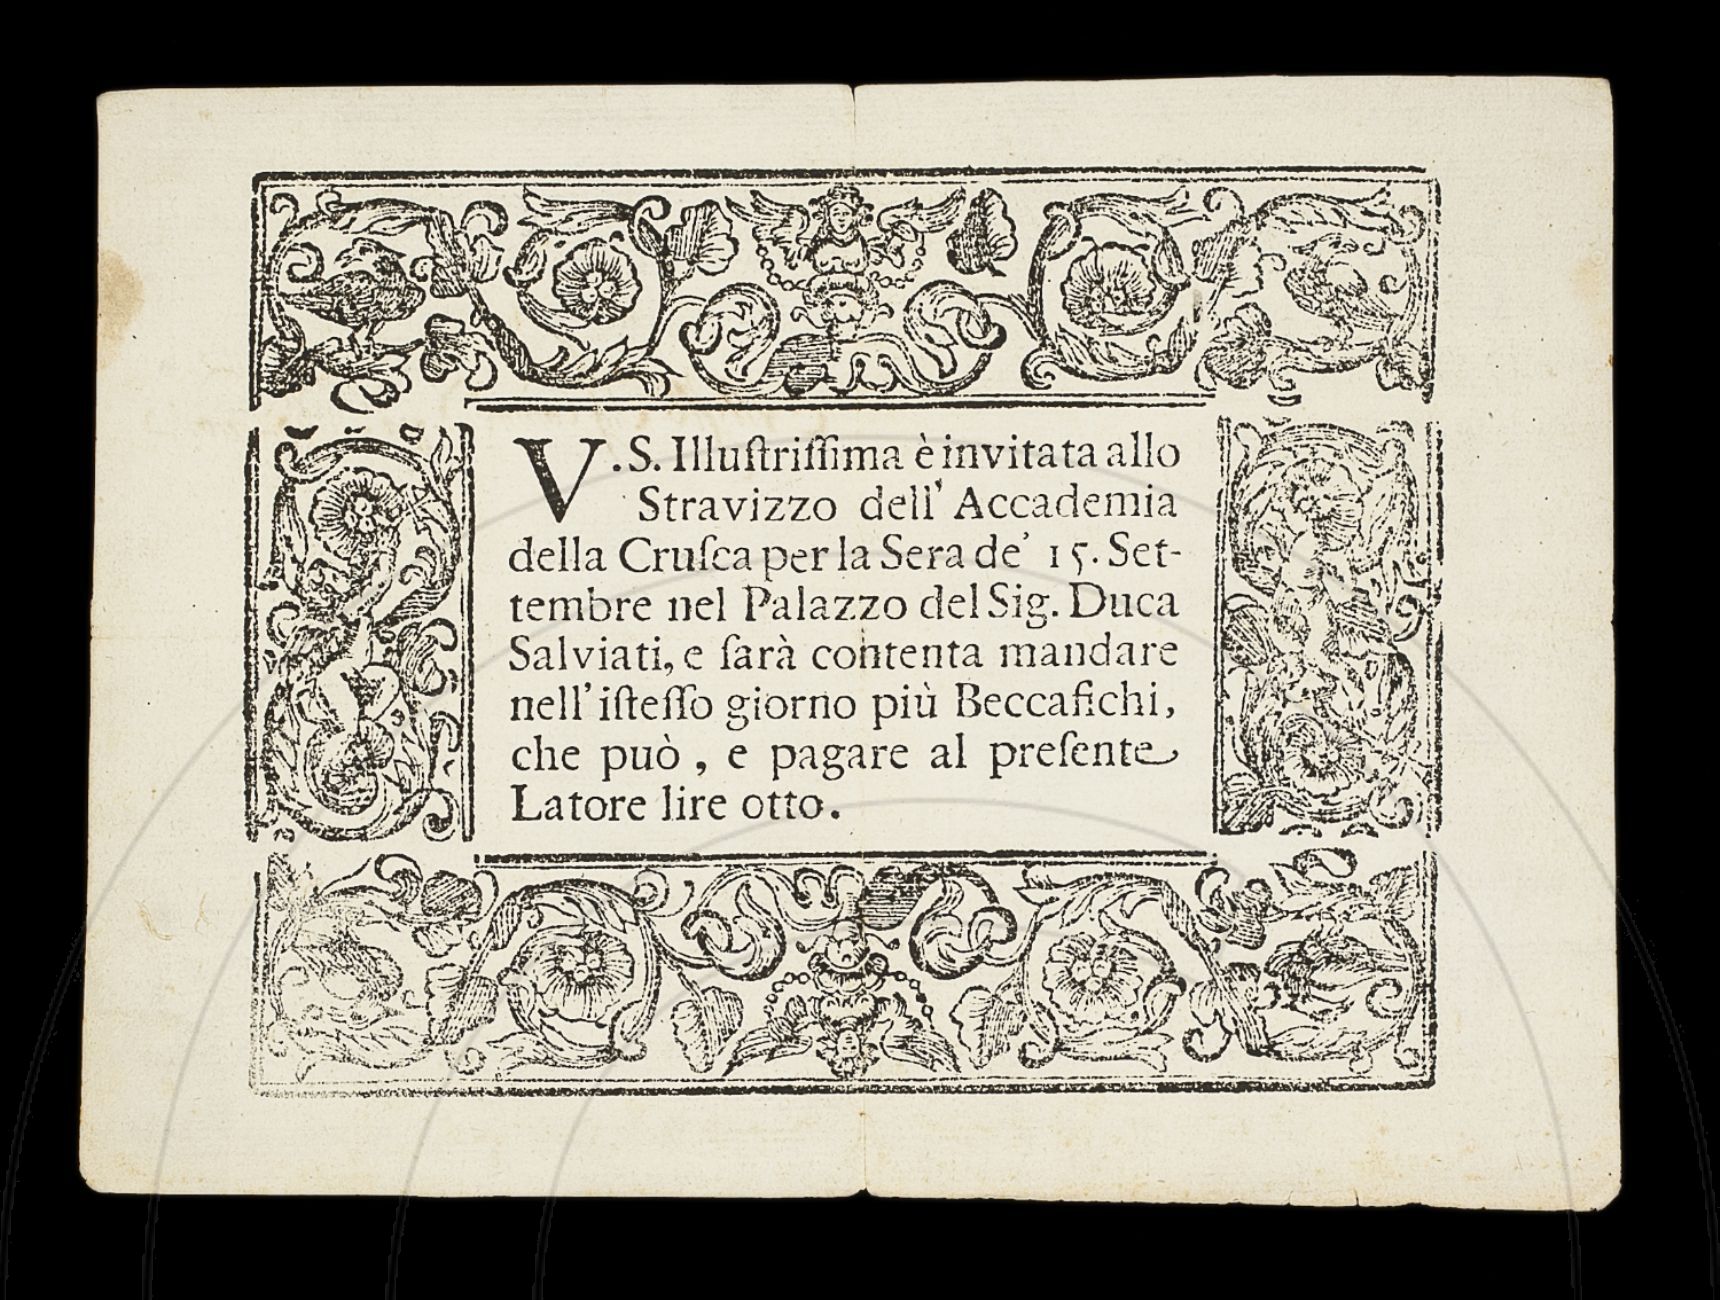 V.S. Illuſtriſſima è invitata allo
Stravizzo dell' Accademia
della Cruſca per la Sera de' 15. Set-
tembre nel Palazzo del Sig. Duca
Salviati, e ſarà contenta mandare
nell' iſteſſo giorno più Beccafichi,
che può, e pagare al preſente
Latore lire otto.